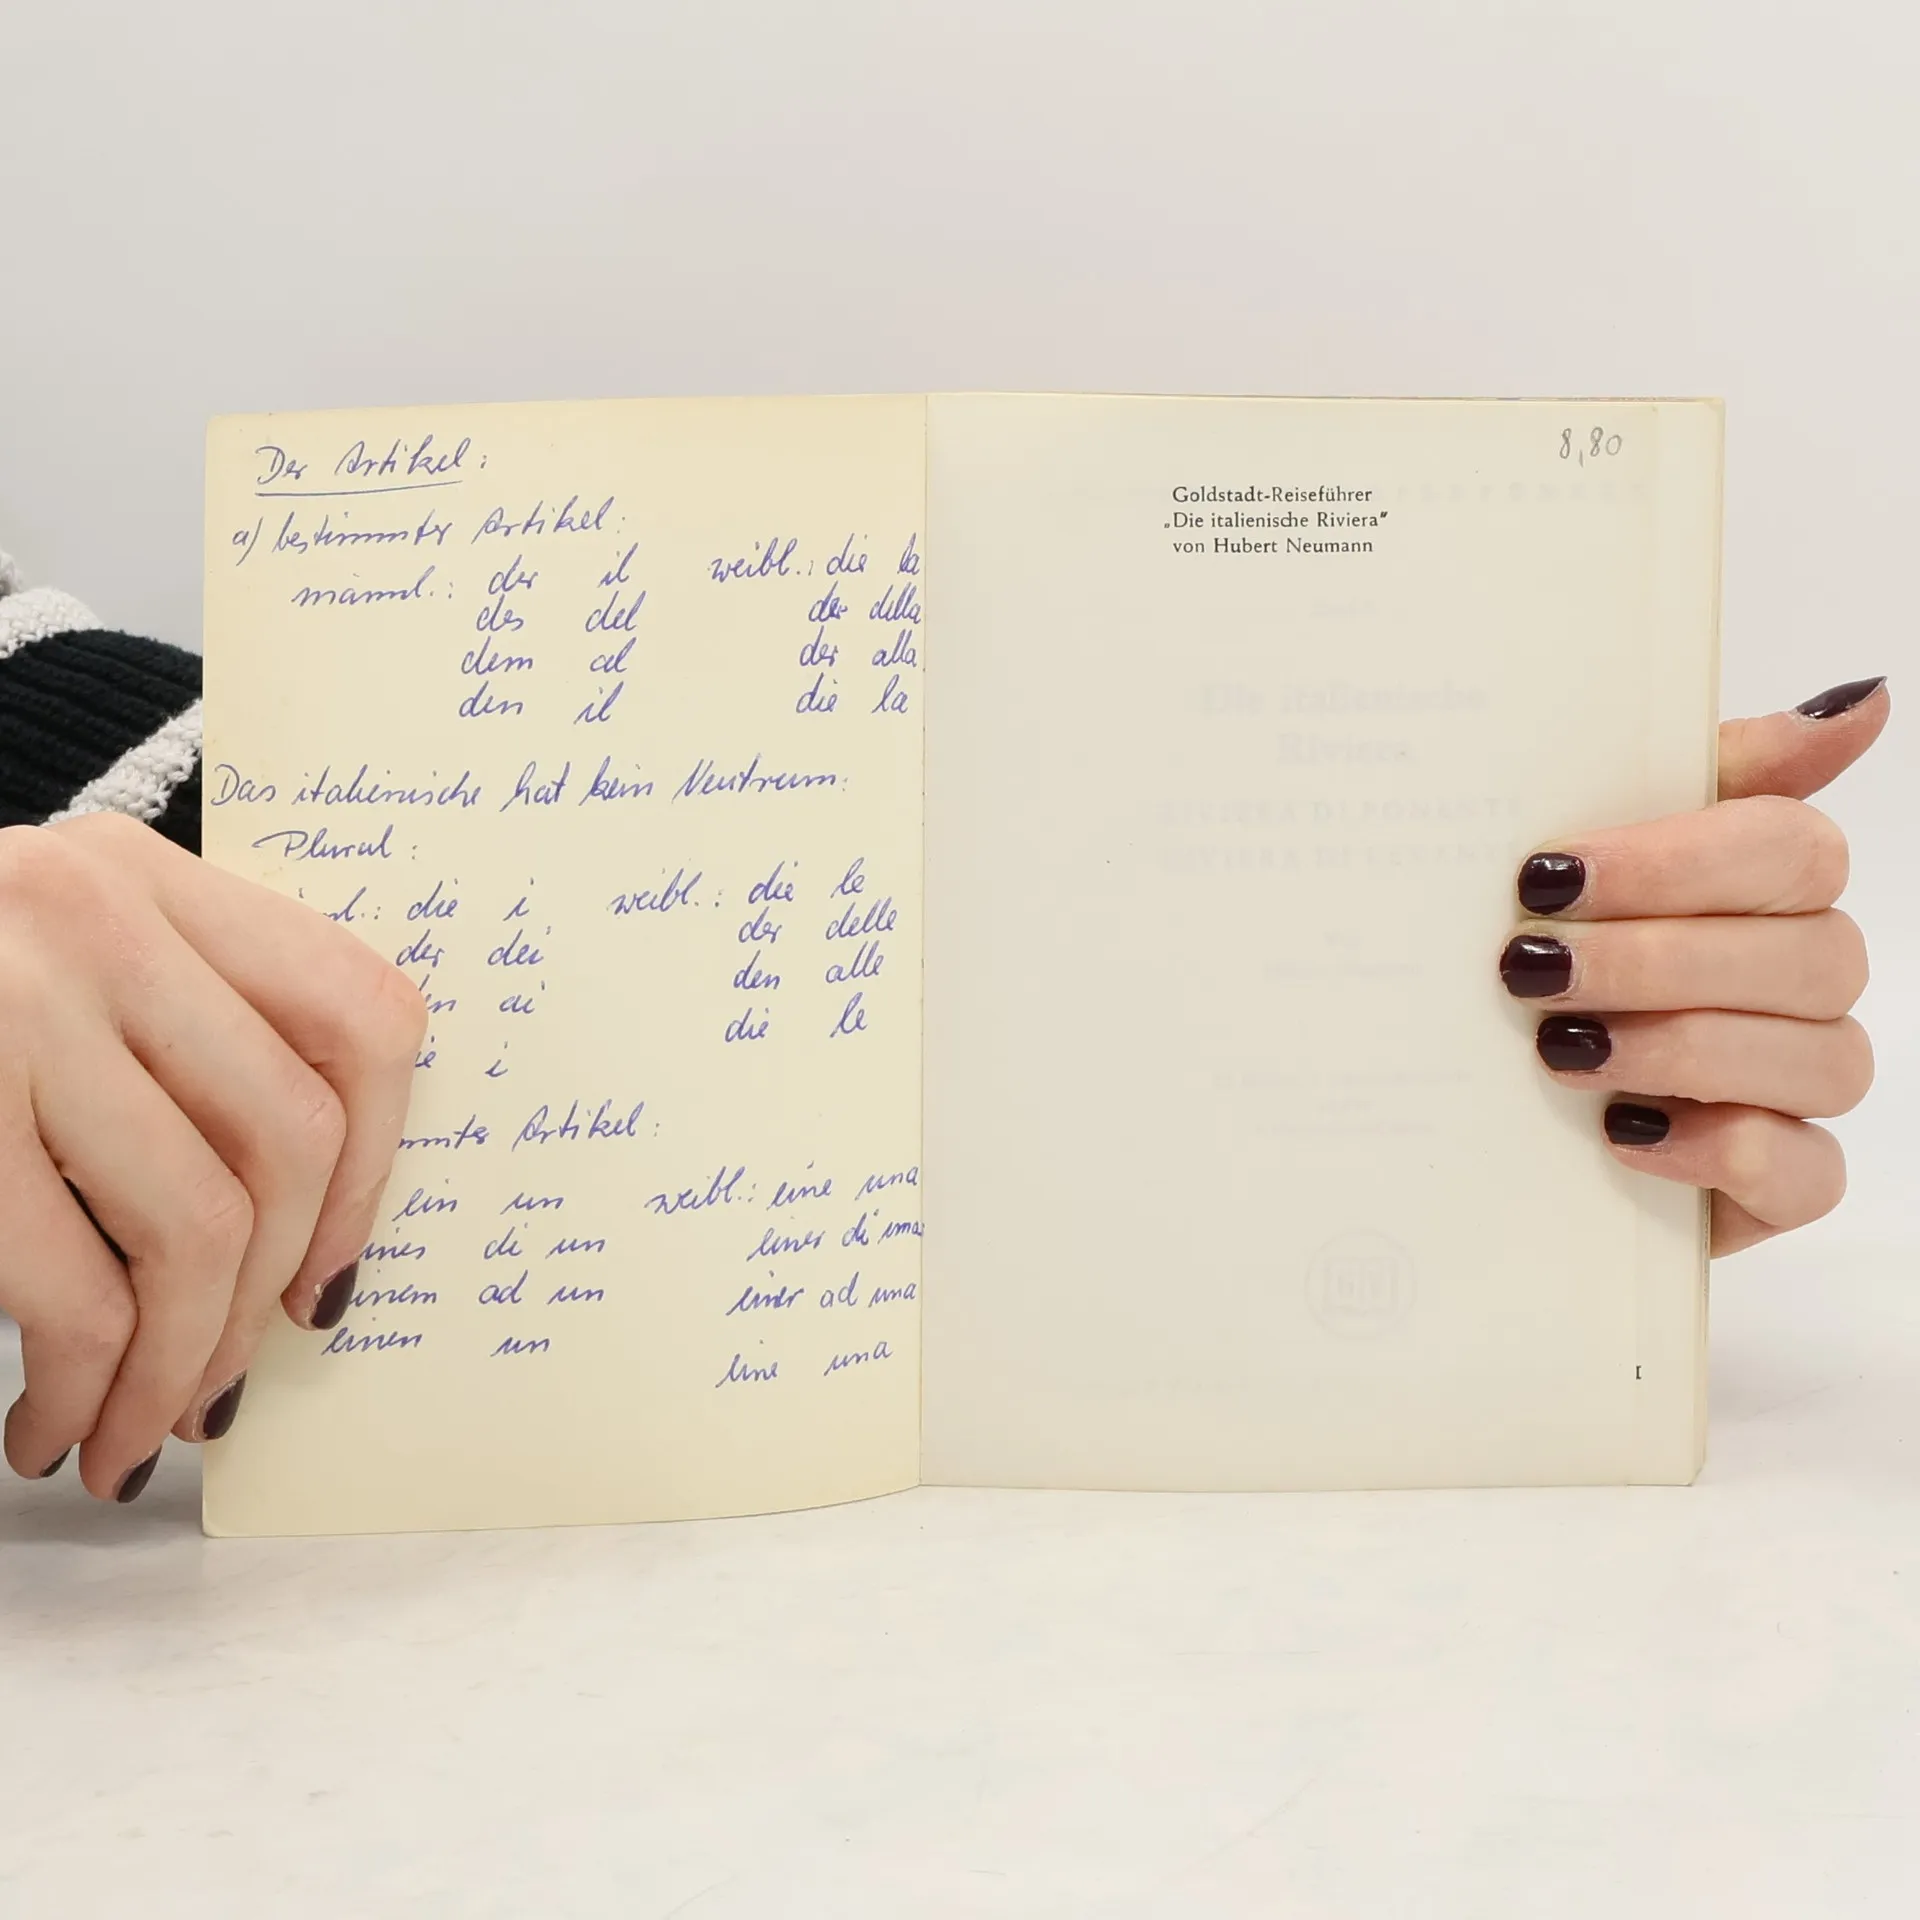 Der Artikel:
a) bestimmter Artikel:
männl.: der il weibl.: die la
des del der della
dem al der alla
den il die la
Das italienische hat kein Neutrum.
Plural:
die i weibl.: die le
der dei der delle
ai den alle
i die le
Artikel:
ein un weibl.: eine una
di un einer di una
ad un einer ad una
einen un eine una
8,80
Goldstadt-Reiseführer
„Die italienische Riviera"
von Hubert Neumann
Die italienische
Riviera
RIVIERA DI PONENTE
RIVIERA DI LEVANTE
I